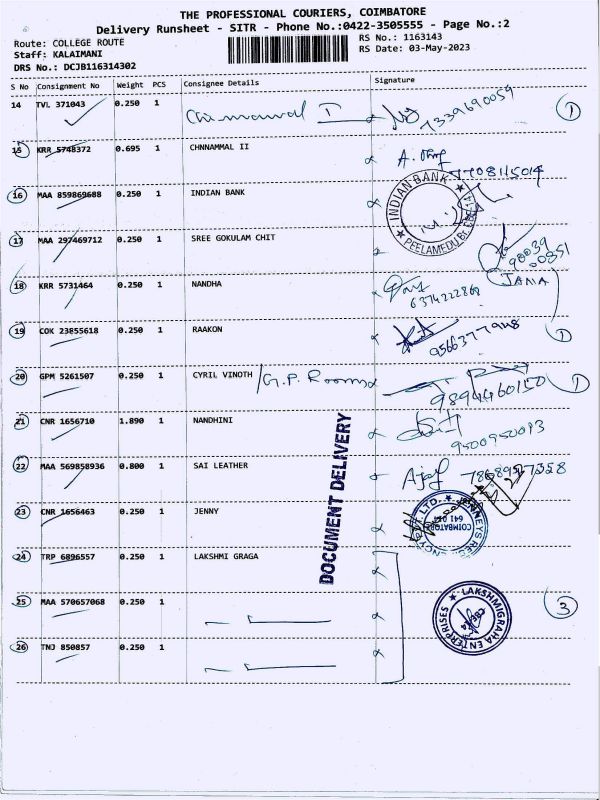 THE PROFESSIONAL COURIERS, COIMBATORE
Delivery Runsheet - SITR - Phone No.:0422-3505555 - Page No.:2
Route: COLLEGE ROUTE
Staff: KALAIMANI
DRS No.: DCJB116314302
RS No.: 1163143
RS Date: 03-May-2023
S No Consignment No Weight PCS Consignee Details Signature
14 TVL 371043 0.250 1 7339690059 1
15 KRR 5748372 0.695 1 CHNNAMMAL II 7708115014
16 MAA 859869688 0.250 1 INDIAN BANK
INDIAN BANK
PEELAMEDU
17 MAA 297469712 0.250 1 SREE GOKULAM CHIT 90039 00851
18 KRR 5731464 0.250 1 NANDHA 6374222868 JANA
19 COK 23855618 0.250 1 RAAKON 1
20 GPM 5261507 0.250 1 CYRIL VINOTH / G.P. Rooms 9894460150 1
21 CNR 1656710 1.890 1 NANDHINI 9500950093
22 MAA 569858936 0.800 1 SAI LEATHER Ajay
DOCUMENT DELIVERY
23 CNR 1656463 0.250 1 JENNY
COIMBATORE
641 014
24 TRP 6896557 0.250 1 LAKSHMI GRAGA
25 MAA 570657068 0.250 1 3
LAKSHMIGRAHA ENTERPRISES
26 TNJ 850857 0.250 1